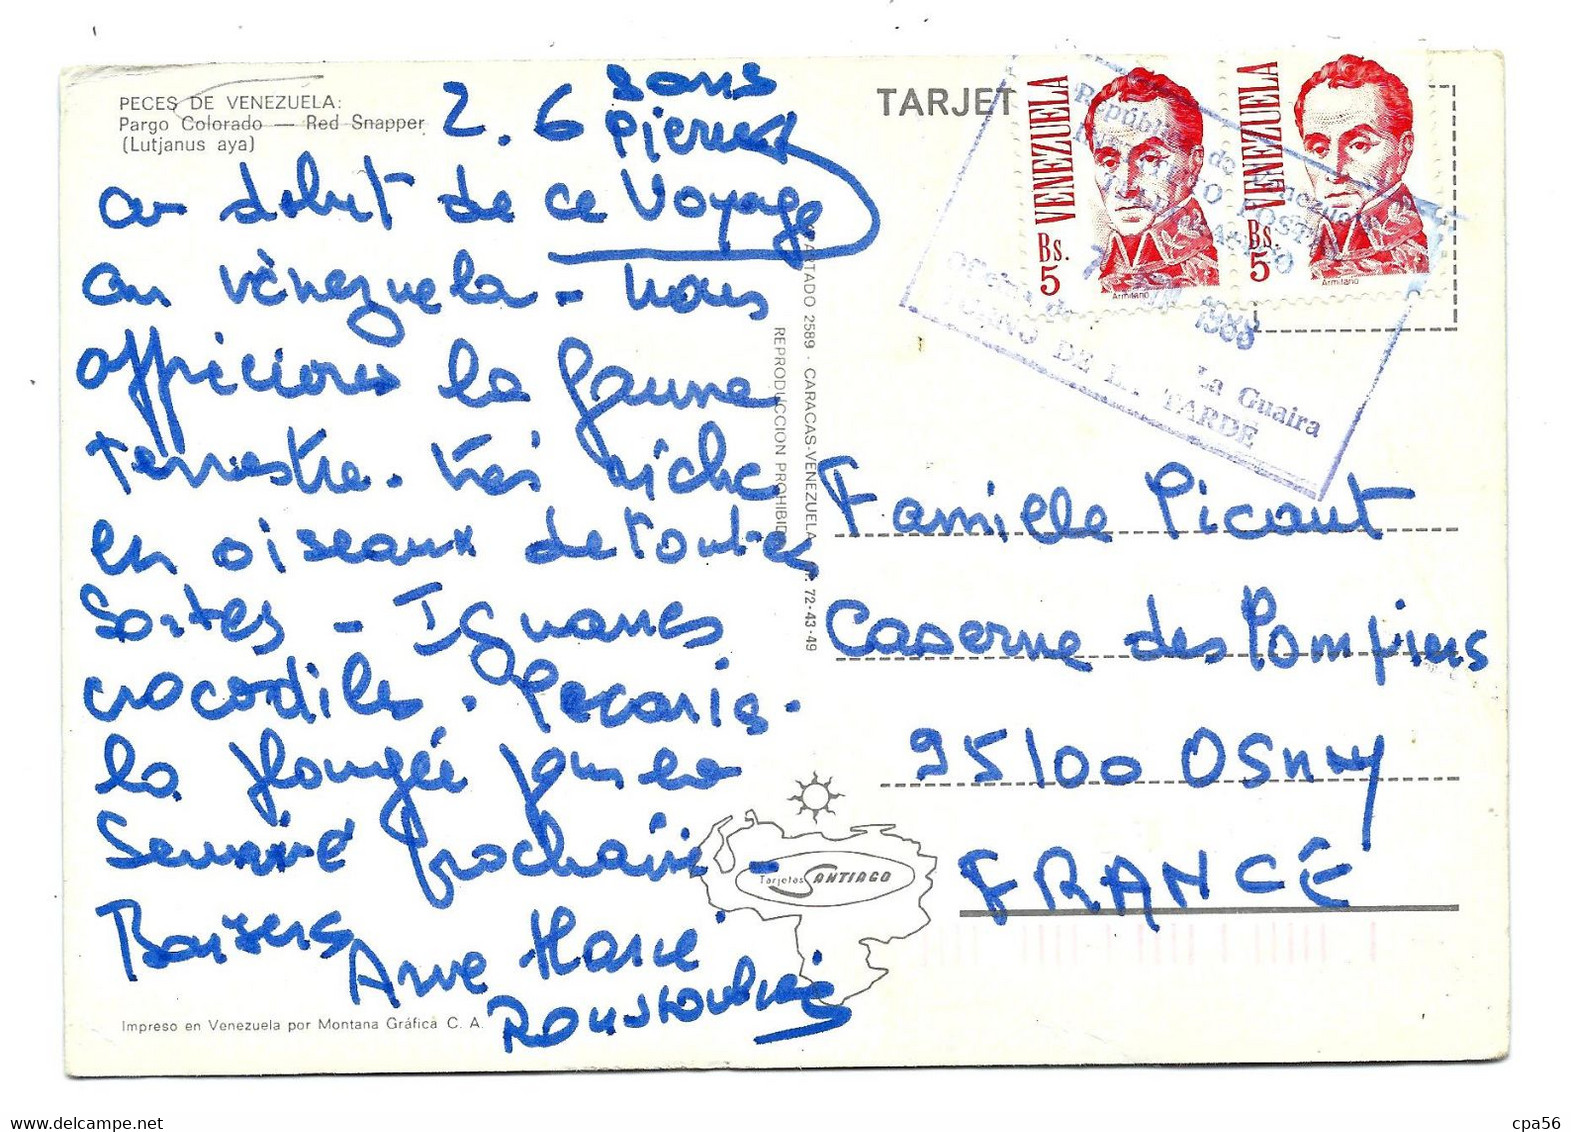 PECES DE VENEZUELA:
Pargo Colorado — Red Snapper
(Lutjanus aya)
2.6 sans
Pierres
au debut de ce voyage
au vènezuela - nous
apprecions la faune
terrestre. très riche
en oiseaux de toutes
sortes - Iguanes
crocodiles. Pecaris.
la plongée pour la
semaine prochaine -
Baisers Anne Marie
APARTADO 2589 - CARACAS-VENEZUELA 72-43-49
REPRODUCCION PROHIBID
Tarjetas SANTIAGO
Impreso en Venezuela por Montana Gráfica C. A.
TARJET
VENEZUELA
Bs.
5
Armitano
VENEZUELA
Bs.
5
Armitano
República de Venezuela
Oficina de La Guaira
TURNO DE LA TARDE
Famille Picaut
Caserne des Pompiers
95100 OSNY
FRANCE
cpa56